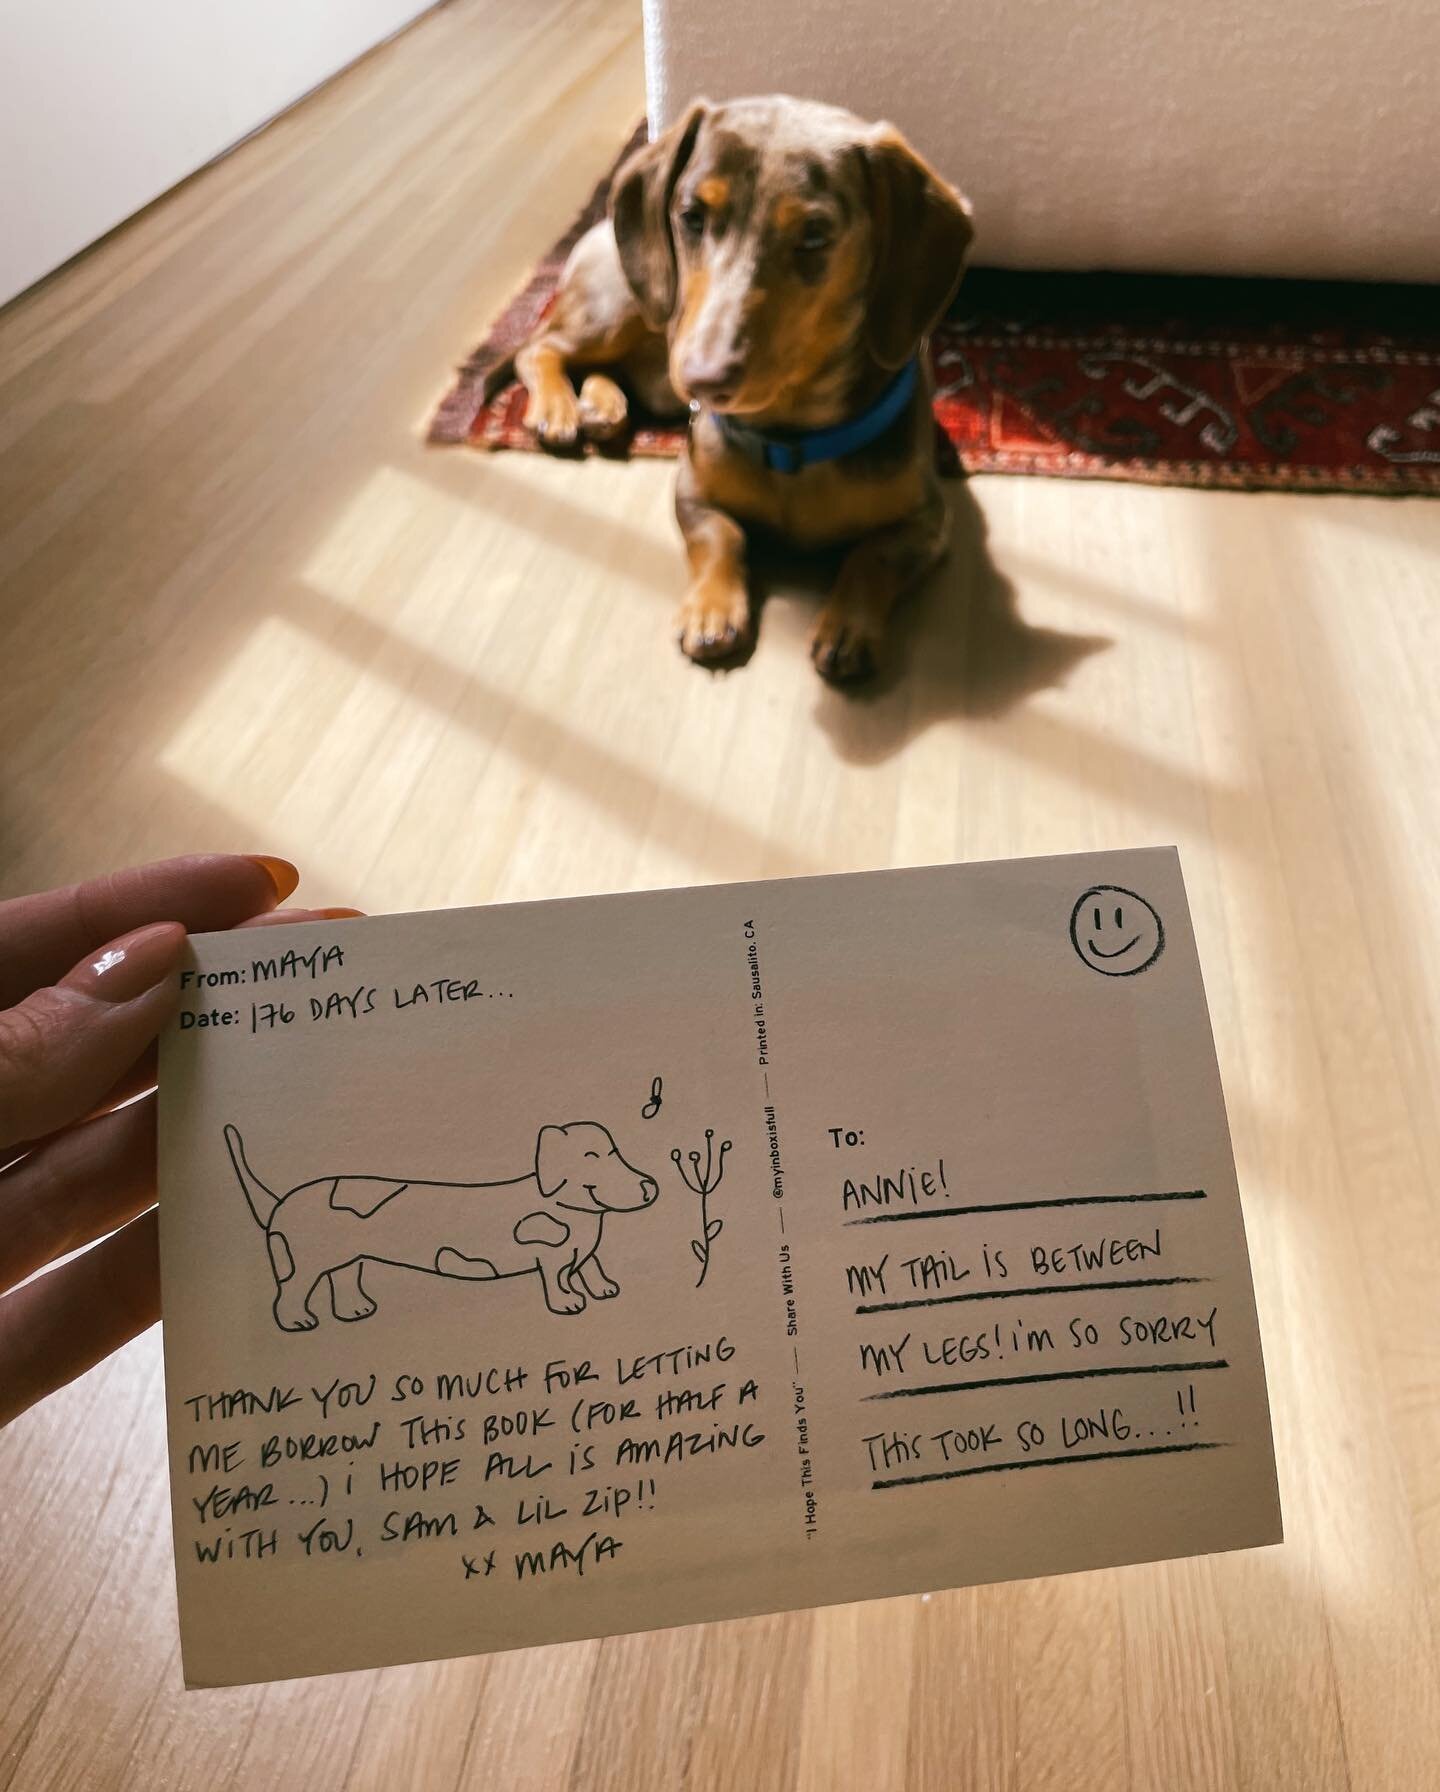 From: MAYA
Date: 176 DAYS LATER...
THANK YOU SO MUCH FOR LETTING
ME BORROW THIS BOOK (FOR HALF A
YEAR...) I HOPE ALL IS AMAZING
WITH YOU, SAM & LIL ZIP!!
xx MAYA
"I Hope This Finds You" — Share With Us — @myinboxisfull — Printed in: Sausalito, CA
To:
ANNIE!
MY TAIL IS BETWEEN
MY LEGS! I'M SO SORRY
THIS TOOK SO LONG...!!